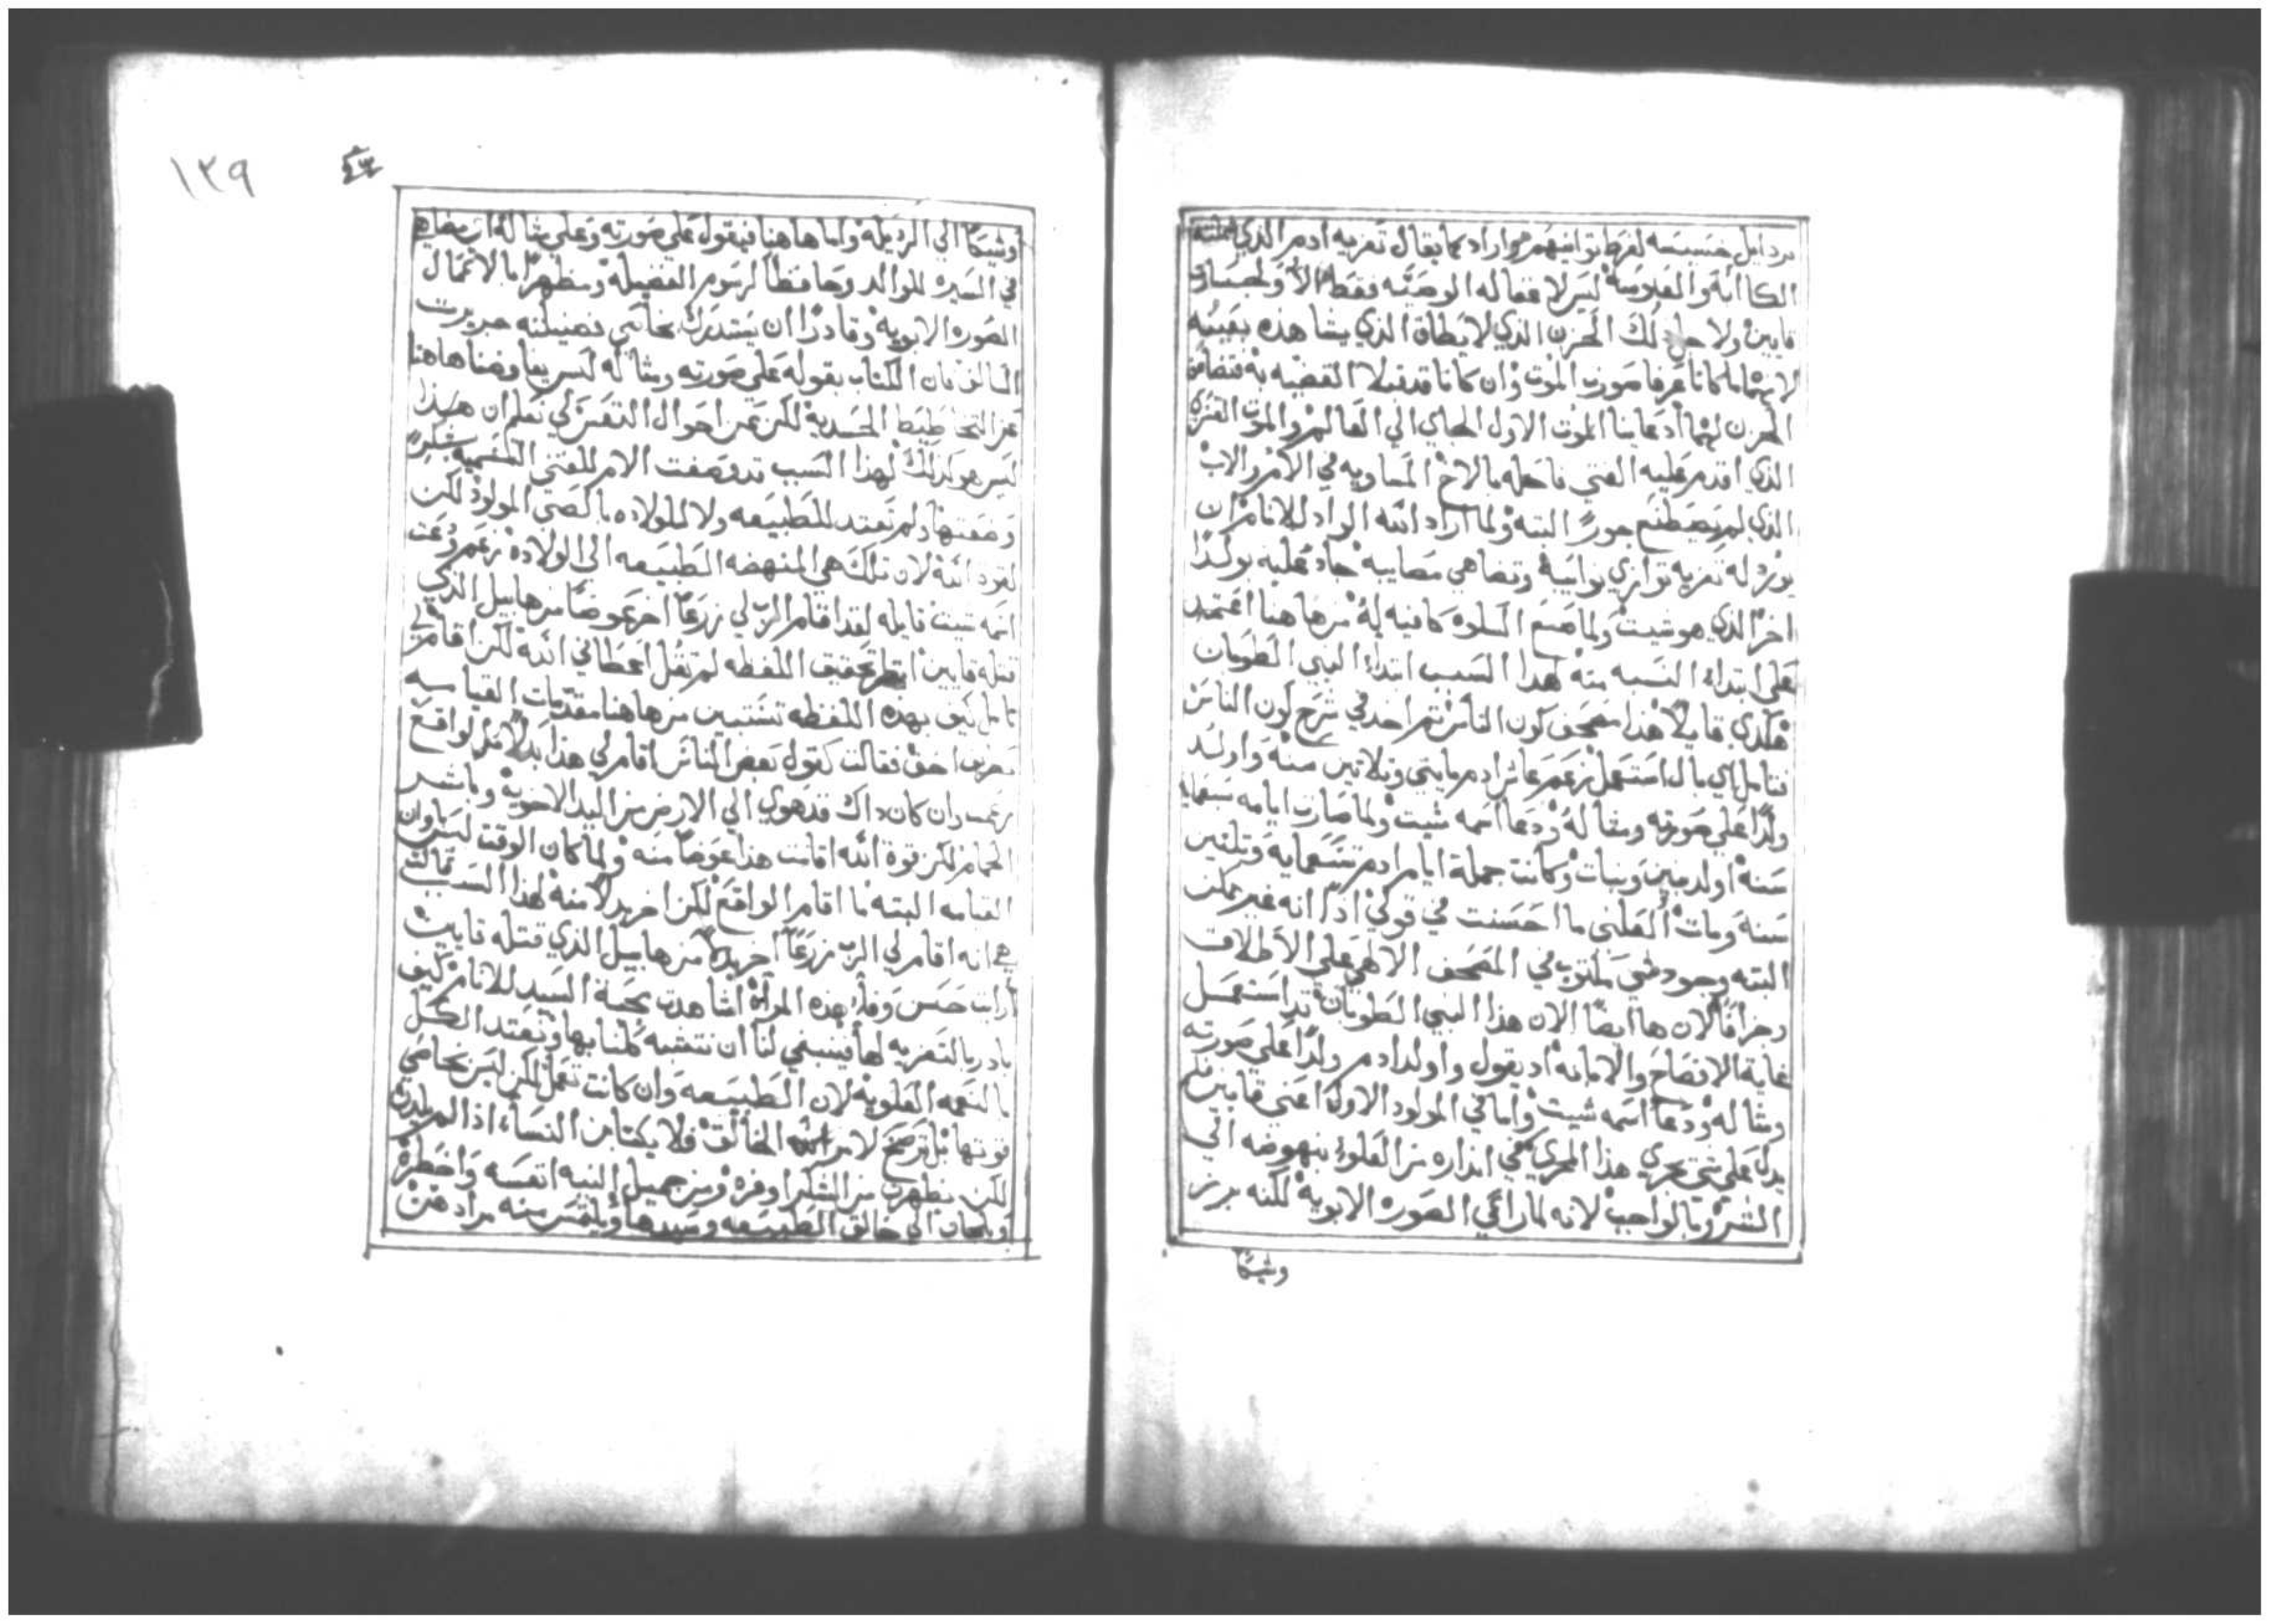 برذايل خسيسه لفرط توانيهم مرارا د كما يقال تعزيه ادم الذي
الكاابه والعبوسه ليس لا فعاله الوضيّه فقط الا ولجساره
قايين ولاجل ذلك الحزن الذي لا يطاق الذي يشاهذه بعينه
لانهما ما كانا عرفا صورة الموت وان كانا قد قبلا القضيه به فتضاعف
الحزن لهما اذ عاينا الموت الاول الجاي الي العالم والموت القسري
الذي اقدم عليه الفتي فاحله بالاخ المساويه في الام والاب
الذي لم يصطنع جورًا البته ولما اراد الله الواد للانام ان
يورد له تعزيه توازي بوايبه وتضاهي مصايبه جاد عليه بولدًا
اخرًا الذي هو شيت ولما صنع السلوه كافيه له من هاهنا اعتمد
علي ابتداء النسبه منه لهدا السبب ابتداء النبي الطوبان
هكدي قايلًا هذا مصحف كون الناس ثم اخد في شرح كون الناس
فتامل اي بال استعمل زعم عاش ادم مايتي وثلاثين سنه واولد
ولدًا علي صورته ومثاله ودعا اسمه شيت ولما صارت ايامه سبعمايه
سنه اولد بنين وبنات وكانت جملة ايام ادم تسعمايه وثلثين
سنه ومات العلني ما احسنت في قولي اذًا انه غير ممكن
البته وجود شي مكتوب في المصحف الالاهي علي الاطلاق
وجزافًا لان ها ايضًا الان هذا النبي الطوبان قد استعمل
غاية الافصاح والابانه اد يقول واولد ادم ولدًا علي صورته
ومثاله ودعا اسمه شيت واما في المولود الاول اعني قايين فلم
يدل علي شي يجري هذا المجري في انداره من العلو بنهوضه الي
الشر وبالواجب لانه لما راعي الصوره الابويه لكنه برز
وشيكًا
١٣٩
وشيكًا الي الرذيله واما هاهنا فيقول علي صورته وعلي مثاله اي مضاهي
في السيره للوالد وحافظًا لرسوم الفضيله ومظهرًا بالاعمال
الصوره الابويه وقادرًا ان يستدرك بخاصي فضيلته جريرت
السالف فان الكتاب بقوله علي صورته ومثاله ليس يعرضنا هاهنا
عن التخاطيط الجسديه لكن عن احوال النفس لي نعلم ان هذا
ليس هو كذلك لهذا السبب قد وضعت الام للفتي التسميه بشكر
وضعتها ولم تعتد للطبيعه ولا للولاده بالصبي المولود لكن
لقوة الله لان تلك هي المنهضه الطبيعه الي الولاده زعم ودعت
اسمه شيت قايله لقد اقام الرب لي زرعًا اخر عوضًا من هابيل الذي
قتله قايين انظر تحقيق اللفظه لم تقل اعطاني الله لكن اقام لي
تامل كيف بهده اللفظه تستبين من هاهنا مقدمات القيامه
بغرض اخفي فقالت كقول بعض الناس اقام لي هذا بدلًا من الواقع
زعمت وان كان داك قد هوي الي الارض من اليد الاخويه وباشر
الحمام لكن قوة الله اقامت هذا عوضًا منه ولما كان الوقت ليس باوان
القيامه البته ما اقام الواقع لكن اخر بدلًا منه لهذا السبب قالت
هي انه اقام لي الرب زرعًا اخر بدلًا من هابيل الذي قتله قايين
ارايت حسن وفاء هذه المراة اشاهدت محبة السيد للانام كيف
بادر بالتعزيه لها فينبغي لنا ان نتشبه كلنا بها ونعتد الكل
بالنعمه العلويه لان الطبيعه وان كانت تعمل لكن ليس بخاصي
قوتها بل ترضخ لامر الله الخالق فلا يكتابن النساء اذا لم يلدن
لكن يظهرن من الشكر اوفره ومن جميل النيه انفسه واخطره
ويلجان الي خالق الطبيعه وسيدها ويلتمس منه مرادهن